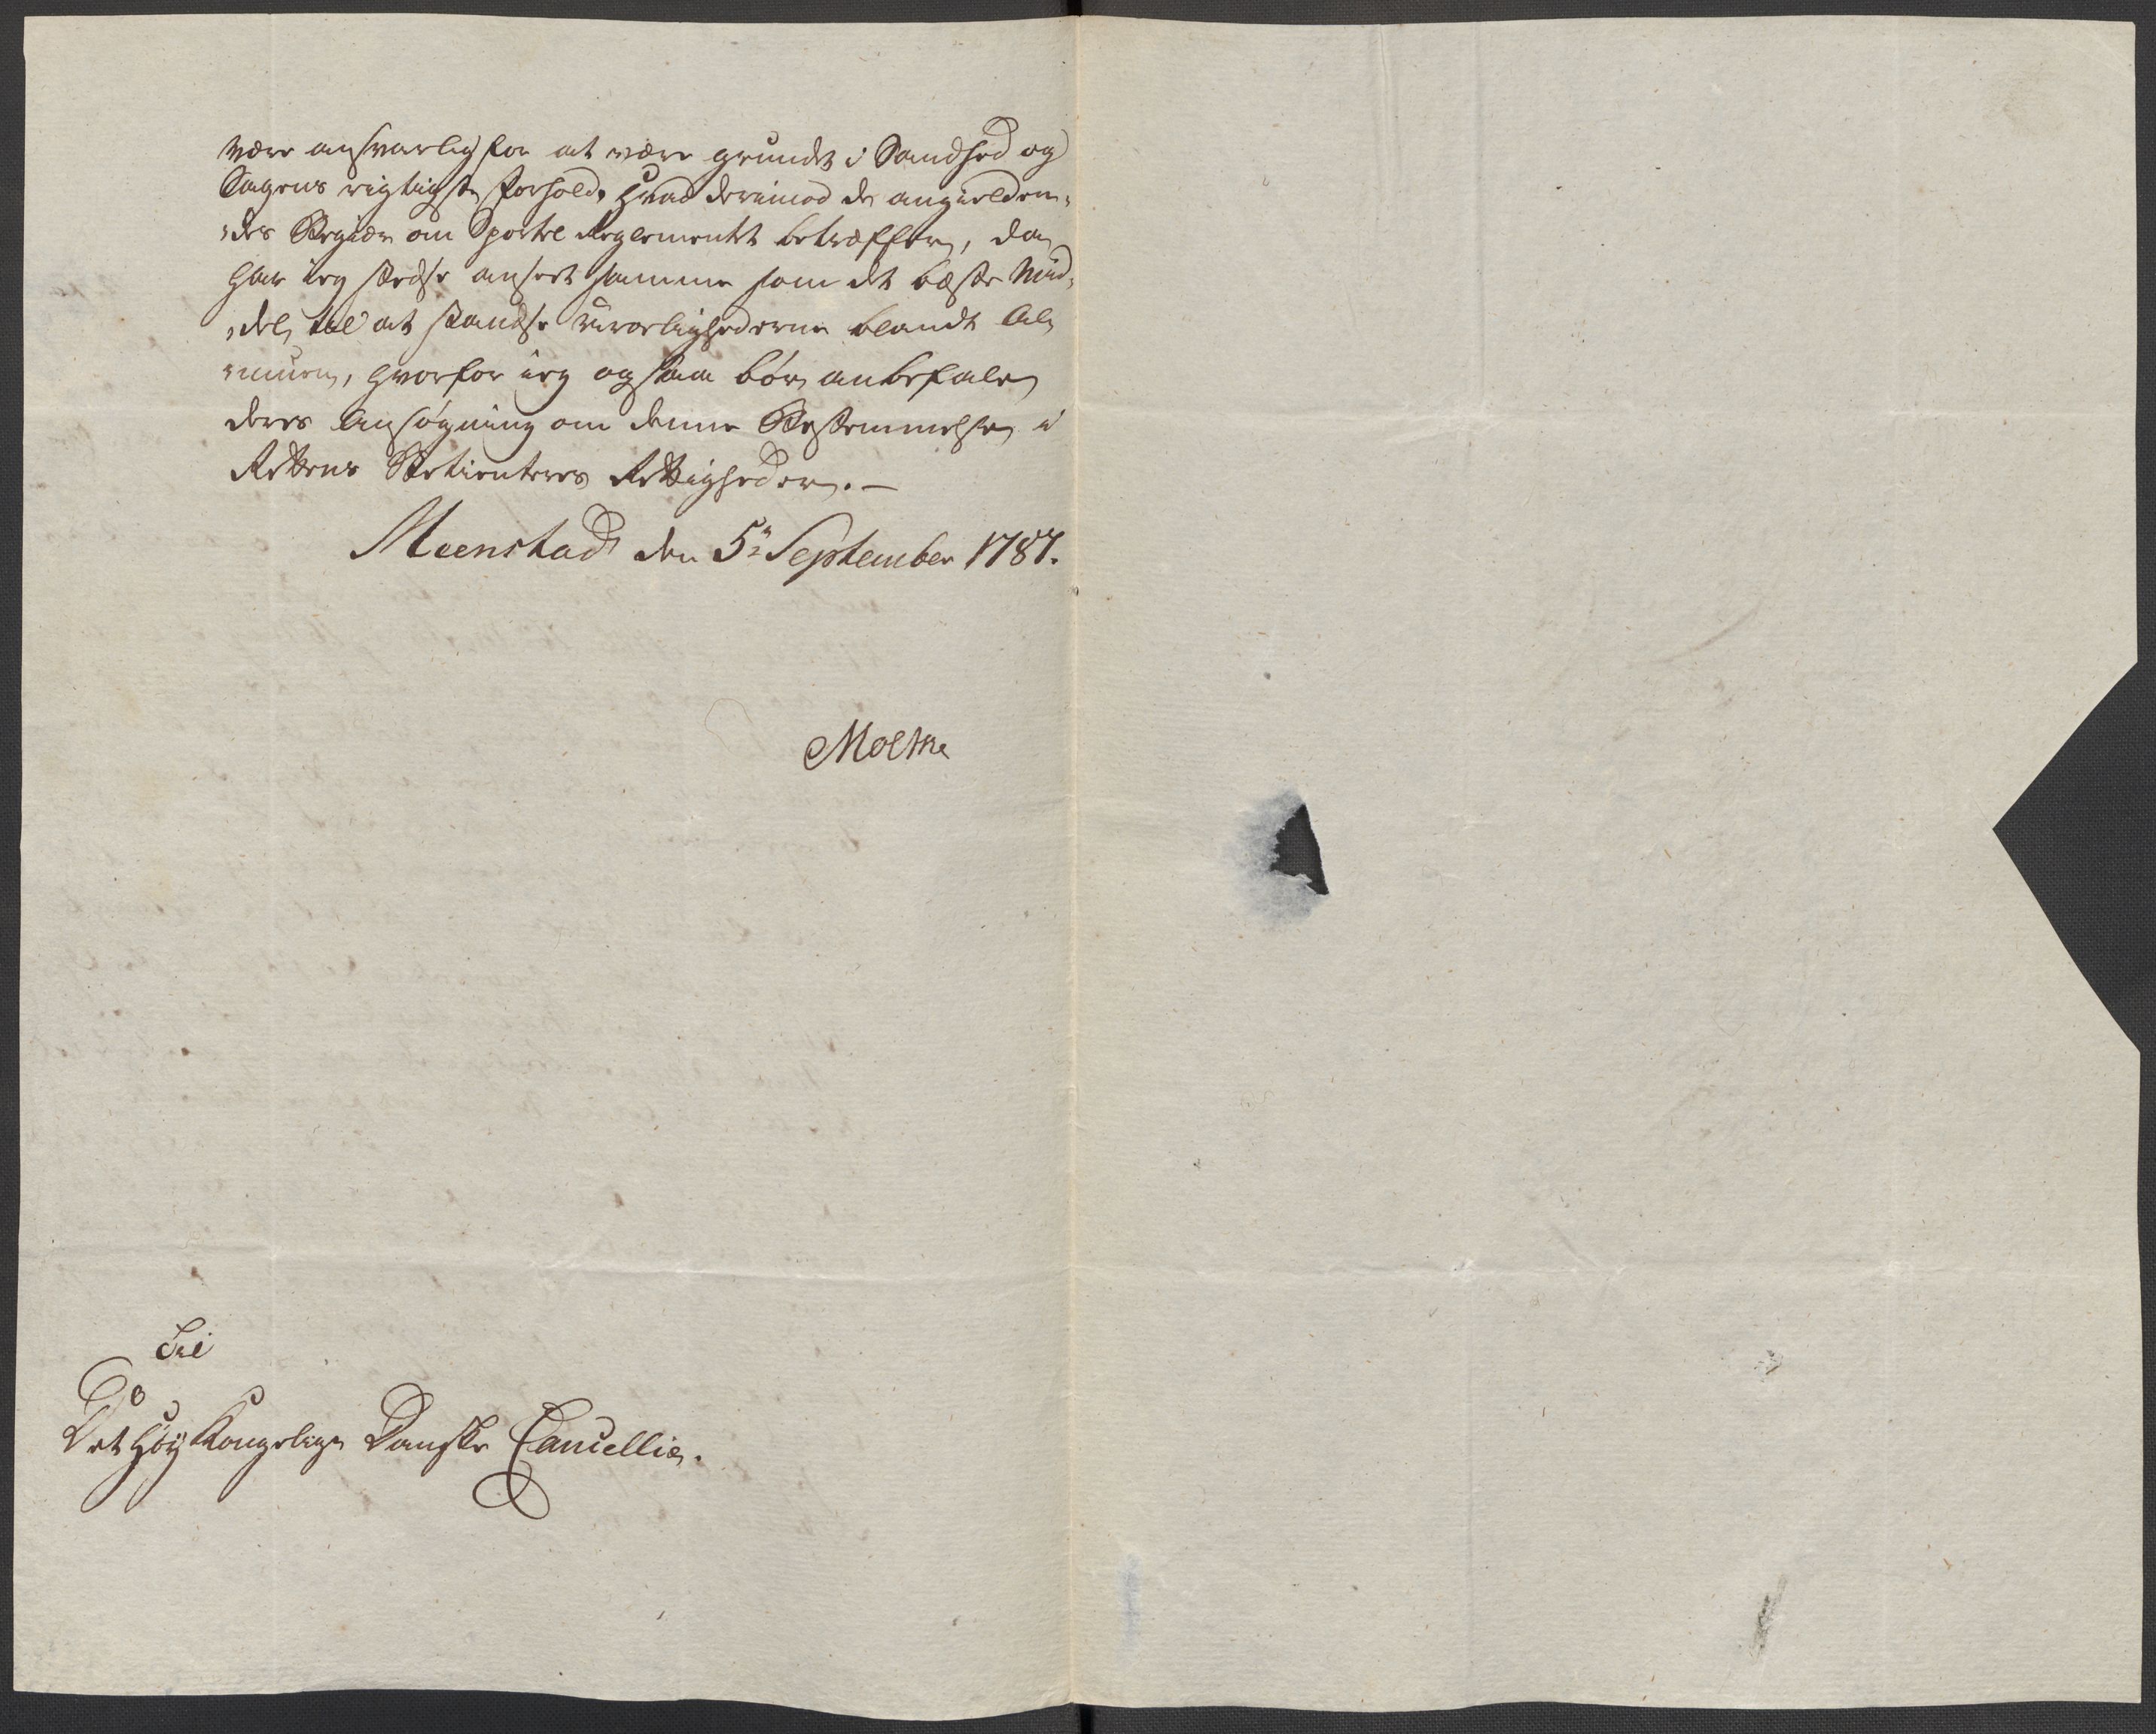 være ansvarlig for at være grundet i Sandhed og
Sagens rigtigste forhold. Hvad derimod de angieldem¬
des Begiær om Sportel Reglementet betræffer, da
har ieg stedse anseet samme som det beste Mid¬
del til at standse uroelighederne blandt Al¬
muen, hvorfor ieg ogsaa bør anbefale
deres Ansøgning om denne Bestemmelse i
Rettens Betienteres Rettigheder. —
Meenstad den 5te September 1787.
Moltke
Til
Det Høy Kongelige Danske Cancellie.